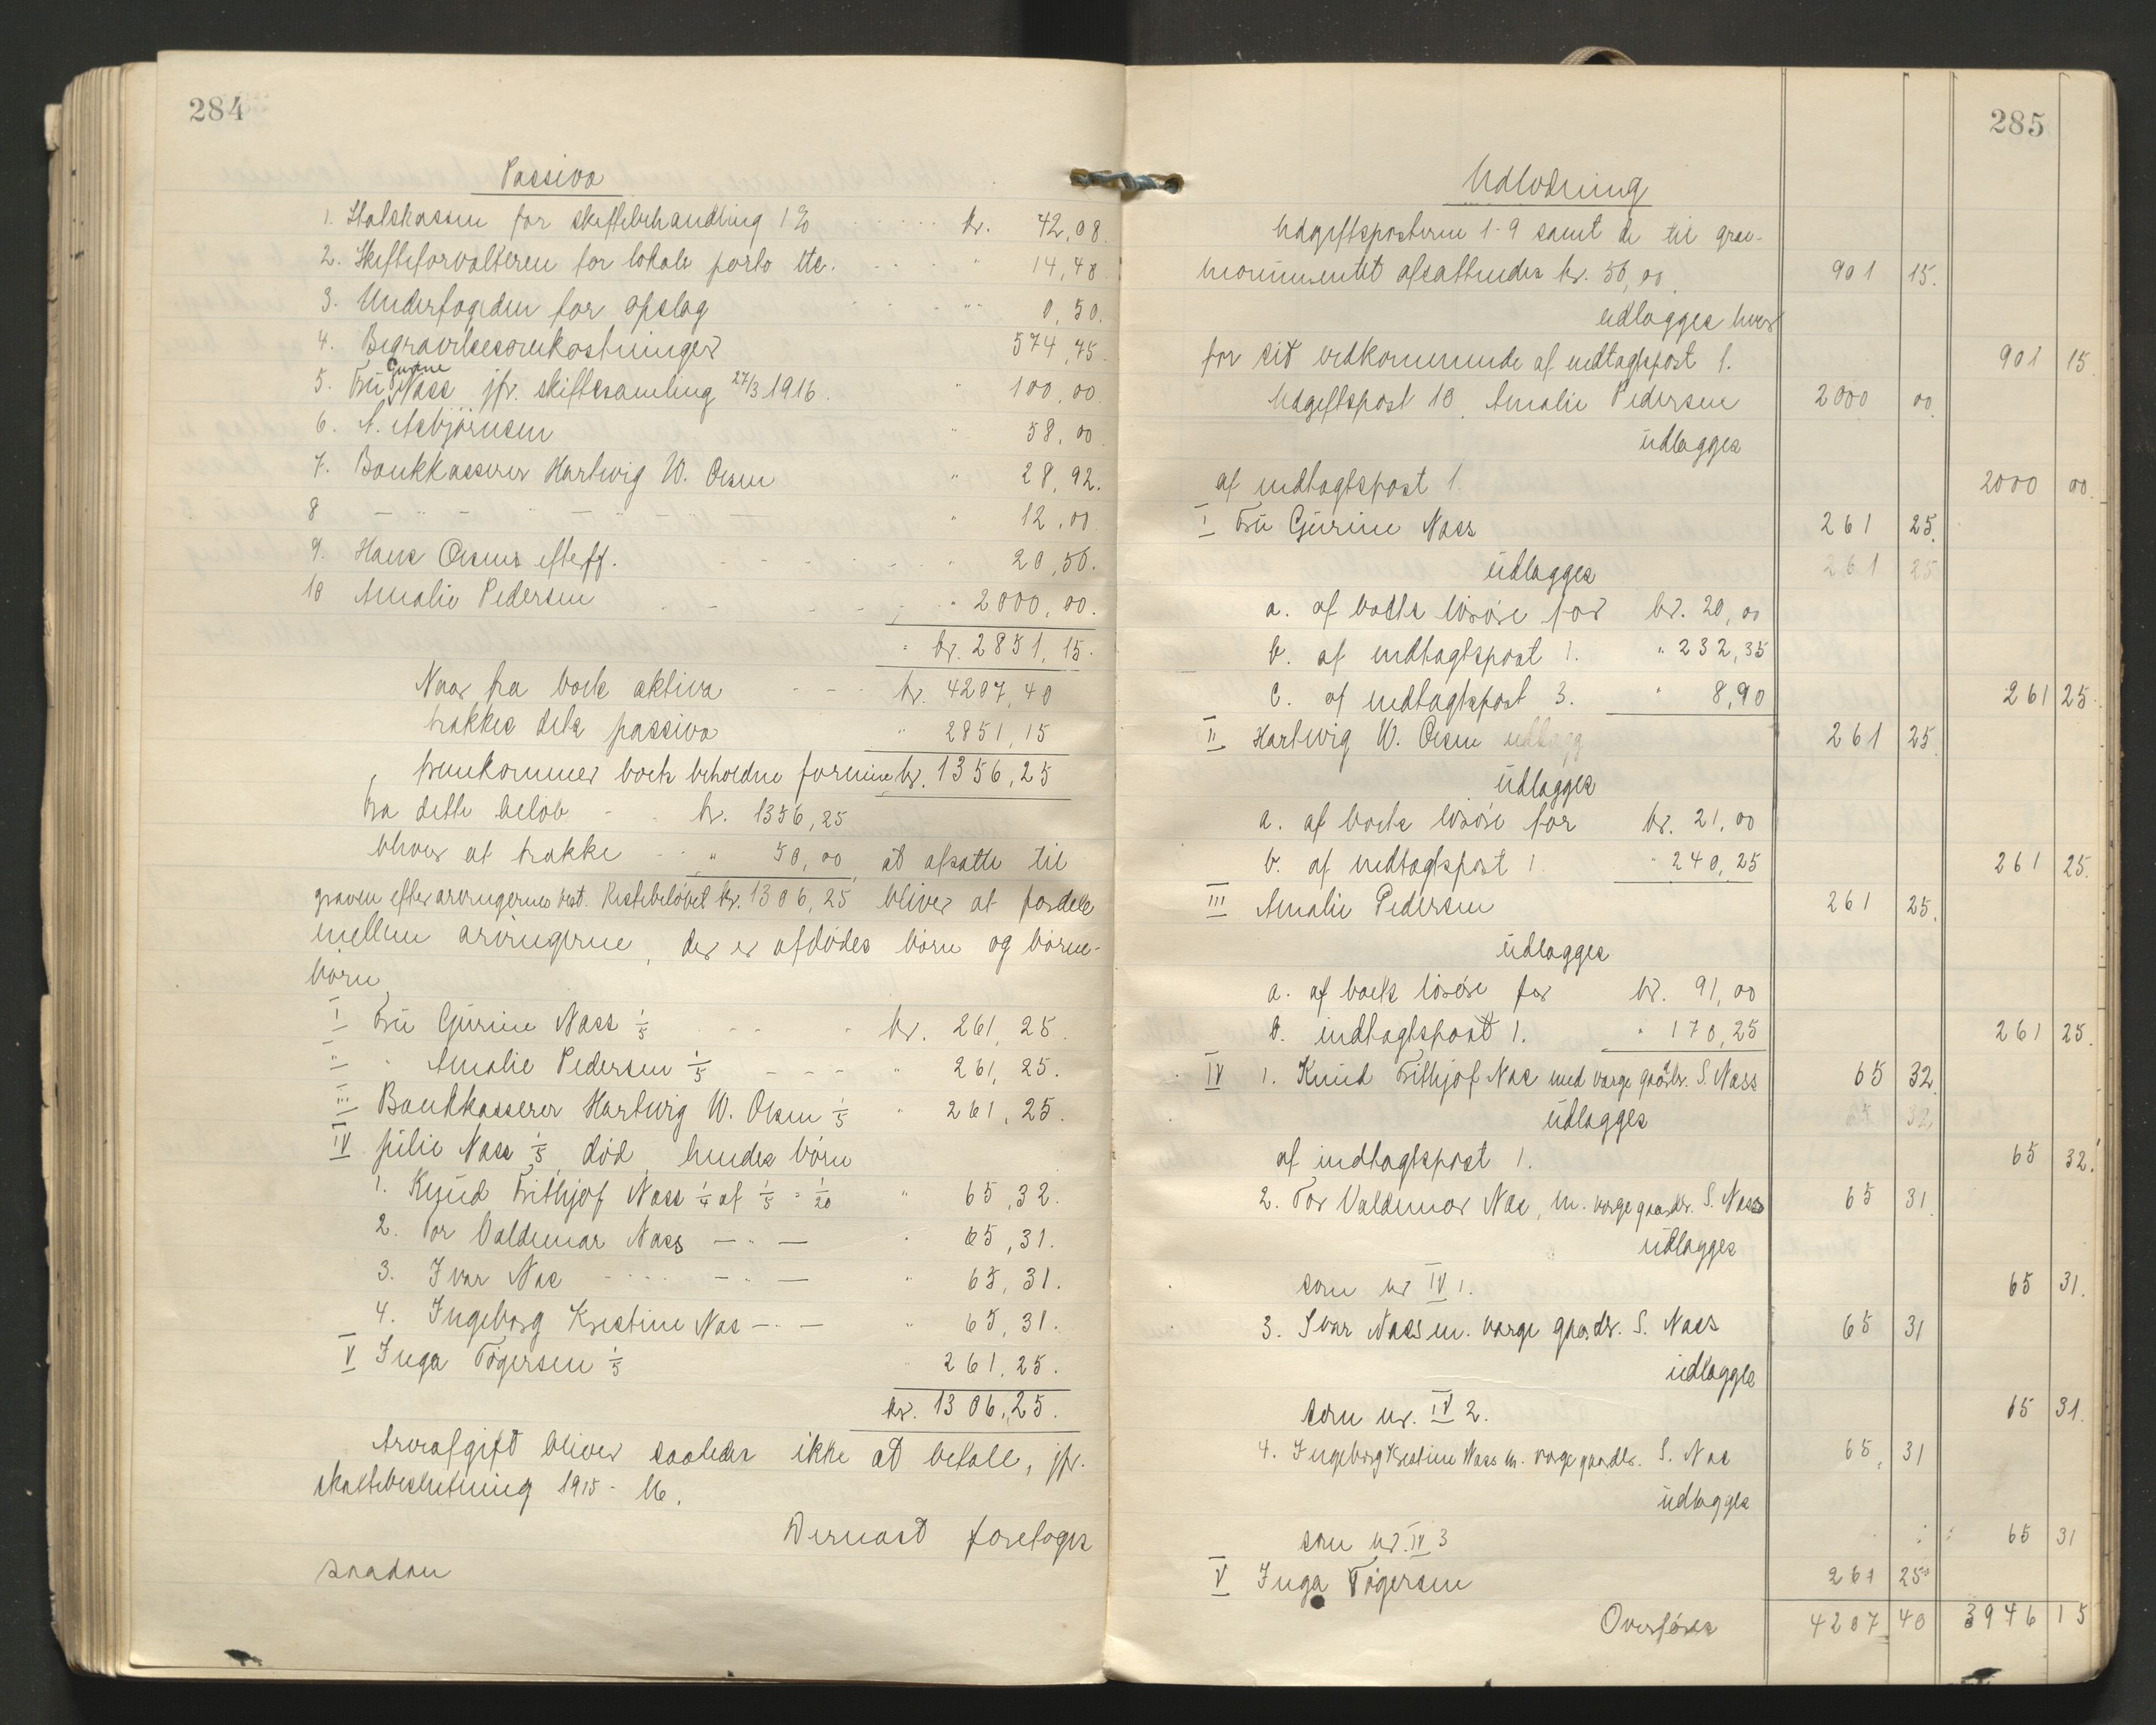 284
Passiva
1. Statskassen for skiftebehandling 1% kr. 42,08.
2. Skifteforvalteren for lokale porto etc. " 14,48
3. Underfogden for opslag " 0,50.
4. Begravelsesomkostninger 574,45
5. Fru Gurine Næss jfr. skiftesamling 27/3 1916. " 100,00
6. A. Asbjörnsen " 58,00
7. Bankkasserer Hartwig W. Olsen " 28,92.
8 — " — " — " — " 12,00
9. Hans Olsens efterf. " 20,50.
10 Amalie Pedersen " 2000,00.
kr. 2851,15.
Naar fra boets aktiva kr. 4207,40
trækkes dets passiva " 2851,15
fremkommer boets beholdne formue kr. 1356,25
Fra dette beløb kr. 1356,25
bliver at trække " 50,00, at afsætte til
graven efter arvingernes best. Restebeløbet kr. 1306,25 bliver at fordele
mellem arvingerne, der er afdødes børn og børne-
børn
I Fru Gurine Næss 1/5 kr. 261,25.
II " Amalie Pedersen 1/5 " 261,25.
III Bankkasserer Hartwig W. Olsen 1/5 " 261,25.
IV Julie Næss 1/5 død, hendes børn
1. Knud Frithjof Næss 1/4 af 1/5 = 1/20 " 65,32.
2. Tor Valdemar Næss — " — " 65,31.
3. Ivar Næs — " — " 65,31.
4. Ingeborg Kristine Næs — " — " 65,31.
V Inga Tögersen 1/5 261,25.
kr. 1306,25.
Arveafgift bliver saaledes ikke at betale, jfr.
skattebeslutning 1915-16.
Dernæst foretoges
saadan
285
Udlodning
Udgiftsposterne 1-9 samt de til grav-
monumentet afsættendes kr. 50,00. 901 15.
udlægges hver
for sit vedkommende af indtægtspost 1. 901 15
Udgiftspost 10, Amalie Pedersen 2000 00
udlægges
af indtægtspost 1. 2000 00.
I Fru Gurine Næss 261 25.
udlægges 261 25
a. af boets løsøre for kr. 20,00
b. af indtægtspost 1. " 232,35
c. af indtægtspost 3. " 8,90 261 25
II Hartwig W. Olsen udlægg 261 25
udlægges
a. af boets løsøre for kr. 21,00
b. af indtægtspost 1 " 240,25 261 25.
III Amalie Pedersen 261 25.
udlægges
a. af boets løsøre for kr. 91,00
b. indtægtspost 1. " 170,25 261 25.
IV 1. Knud Frithjof Næs med værge gaardbr. S. Næss 65 32
udlægges 65 32,
af indtægtspost 1. 65 32.
2. Tor Valdemar Næs, m. værge gaardbr. S. Næss 65 31
udlægges
som nr IV 1. 65 31.
3. Ivar Næss m. værge gaardbr. S. Næss 65 31
udlægges
som nr. IV 2. 65 31.
4. Ingeborg Kristine Næss m. værge gaardbr. S. Næs 65, 31
udlægges
som nr. IV 3 65 31
V Inga Tögersen 261 25
Overføres 4207 40 3946 15